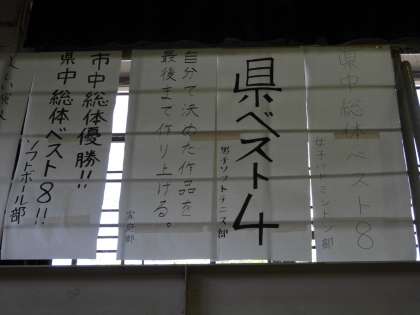 県中総体ベスト8
女子バドミントン部
県ベスト4
男子ソフトテニス部
自分で決めた作品を
最後まで作り上げる。
家庭部
市中総体優勝!!
県中総体ベスト8!!
ソフトボール部